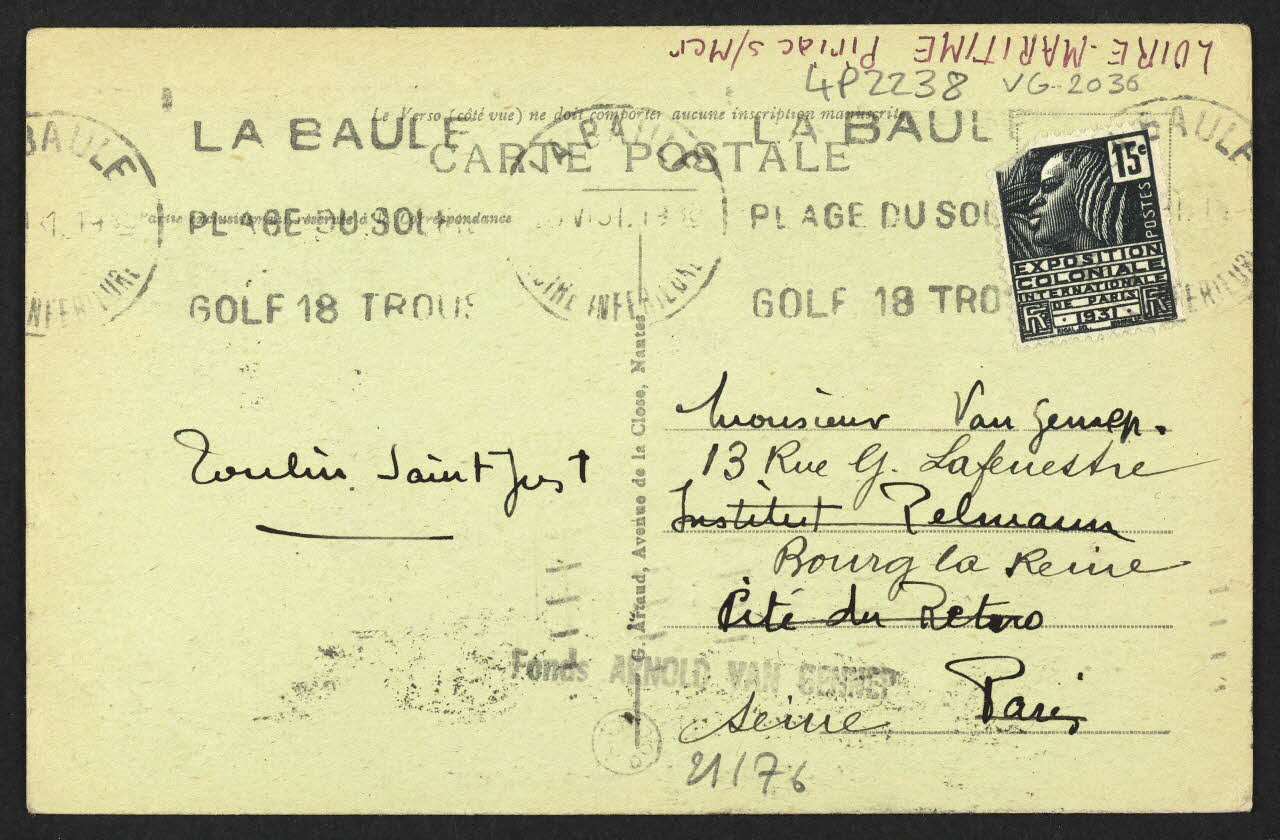 LOIRE-MARITIME Piriac s/Mer
4P2238 VG-2036
Le Verso (côté vue) ne doit comporter aucune inscription manuscrite
LA BAULE
LA BAULE
LA BAUL
BAULE
BAULE
CARTE POSTALE
Partie exclusivement réservée à la Correspondance
PLAGE DU SOLEIL
PLAGE DU SOL
GOLF 18 TROUS
GOLF 18 TRO
INFERIEURE
LOIRE INFERIEURE
15c
POSTES
EXPOSITION
COLONIALE
INTERNATIONALE
DE PARIS
RF 1931 RF
G. Artaud, Avenue de la Close, Nantes
Moulin Saint Just
Monsieur Van Gennep.
13 Rue G. Lafenestre
Institut Pelmann
Bourg la Reine
Cité du Retiro
Paris
Seine
Fonds ARNOLD VAN GENNEP
21/76